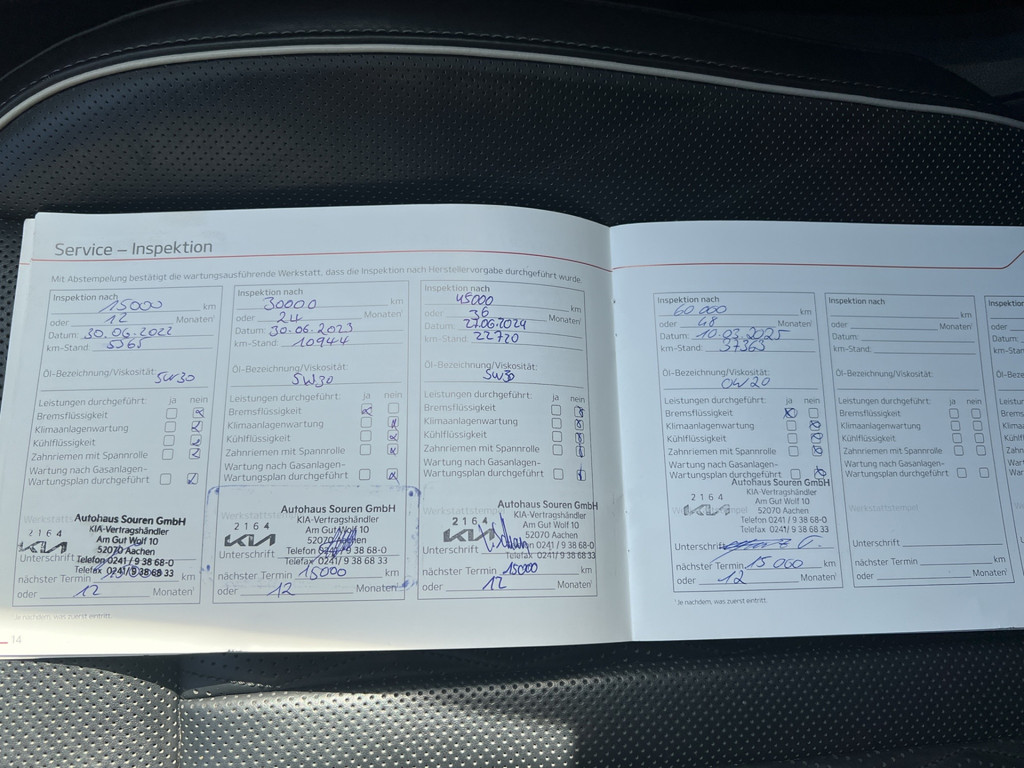 Service – Inspektion
Mit Abstempelung bestätigt die wartungsausführende Werkstatt, dass die Inspektion nach Herstellervorgabe durchgeführt wurde.
Inspektion nach
15000 km
oder 12 Monaten¹
Datum: 30.06.2022
km-Stand: 5365
Öl-Bezeichnung/Viskosität:
5W30
Leistungen durchgeführt: ja nein
Bremsflüssigkeit
Klimaanlagenwartung
Kühlflüssigkeit
Zahnriemen mit Spannrolle
Wartung nach Gasanlagen-
Wartungsplan durchgeführt
Autohaus Souren GmbH
KIA-Vertragshändler
2164
Am Gut Wolf 10
KIA
52070 Aachen
Unterschrift
Telefon 0241/9 38 68-0
Telefax 0241/9 38 68 33
nächster Termin km
oder 12 Monaten¹
Inspektion nach
30000 km
oder 24 Monaten¹
Datum: 30.06.2023
km-Stand: 10944
Öl-Bezeichnung/Viskosität:
5W30
Leistungen durchgeführt: ja nein
Bremsflüssigkeit
Klimaanlagenwartung
Kühlflüssigkeit
Zahnriemen mit Spannrolle
Wartung nach Gasanlagen-
Wartungsplan durchgeführt
Autohaus Souren GmbH
KIA-Vertragshändler
2164
Am Gut Wolf 10
KIA
52070 Aachen
Unterschrift
Telefon 0241/9 38 68-0
Telefax 0241/9 38 68 33
nächster Termin 15000 km
oder 12 Monaten¹
Inspektion nach
45000 km
oder 36 Monaten¹
Datum: 27.06.2024
km-Stand: 22720
Öl-Bezeichnung/Viskosität:
5W30
Leistungen durchgeführt: ja nein
Bremsflüssigkeit
Klimaanlagenwartung
Kühlflüssigkeit
Zahnriemen mit Spannrolle
Wartung nach Gasanlagen-
Wartungsplan durchgeführt
Autohaus Souren GmbH
KIA-Vertragshändler
2164
Am Gut Wolf 10
KIA
52070 Aachen
Unterschrift
Telefon 0241/9 38 68-0
Telefax 0241/9 38 68 33
nächster Termin 15000 km
oder 12 Monaten¹
¹ Je nachdem, was zuerst eintritt.
14
Inspektion nach
60.000 km
oder 48 Monaten¹
Datum: 10.03.2025
km-Stand: 37363
Öl-Bezeichnung/Viskosität:
0W20
Leistungen durchgeführt: ja nein
Bremsflüssigkeit
Klimaanlagenwartung
Kühlflüssigkeit
Zahnriemen mit Spannrolle
Wartung nach Gasanlagen-
Wartungsplan durchgeführt
Autohaus Souren GmbH
KIA-Vertragshändler
2164
Am Gut Wolf 10
KIA
52070 Aachen
Telefon 0241/9 38 68-0
Telefax 0241/9 38 68 33
Unterschrift
nächster Termin 15000 km
oder 12 Monaten¹
¹ Je nachdem, was zuerst eintritt.
Inspektion nach
km
oder Monaten¹
Datum:
km-Stand:
Öl-Bezeichnung/Viskosität:
Leistungen durchgeführt: ja nein
Bremsflüssigkeit
Klimaanlagenwartung
Kühlflüssigkeit
Zahnriemen mit Spannrolle
Wartung nach Gasanlagen-
Wartungsplan durchgeführt
Werkstattstempel
Unterschrift
nächster Termin km
oder Monaten¹
Inspektion
oder
Datum:
km-Stand:
Öl-Bezeichn
Leistungen
Bremsflüss
Klimaanlag
Kühlflüssig
Zahnriemen
Wartung
Wartungs
Unterschri
nächster
oder